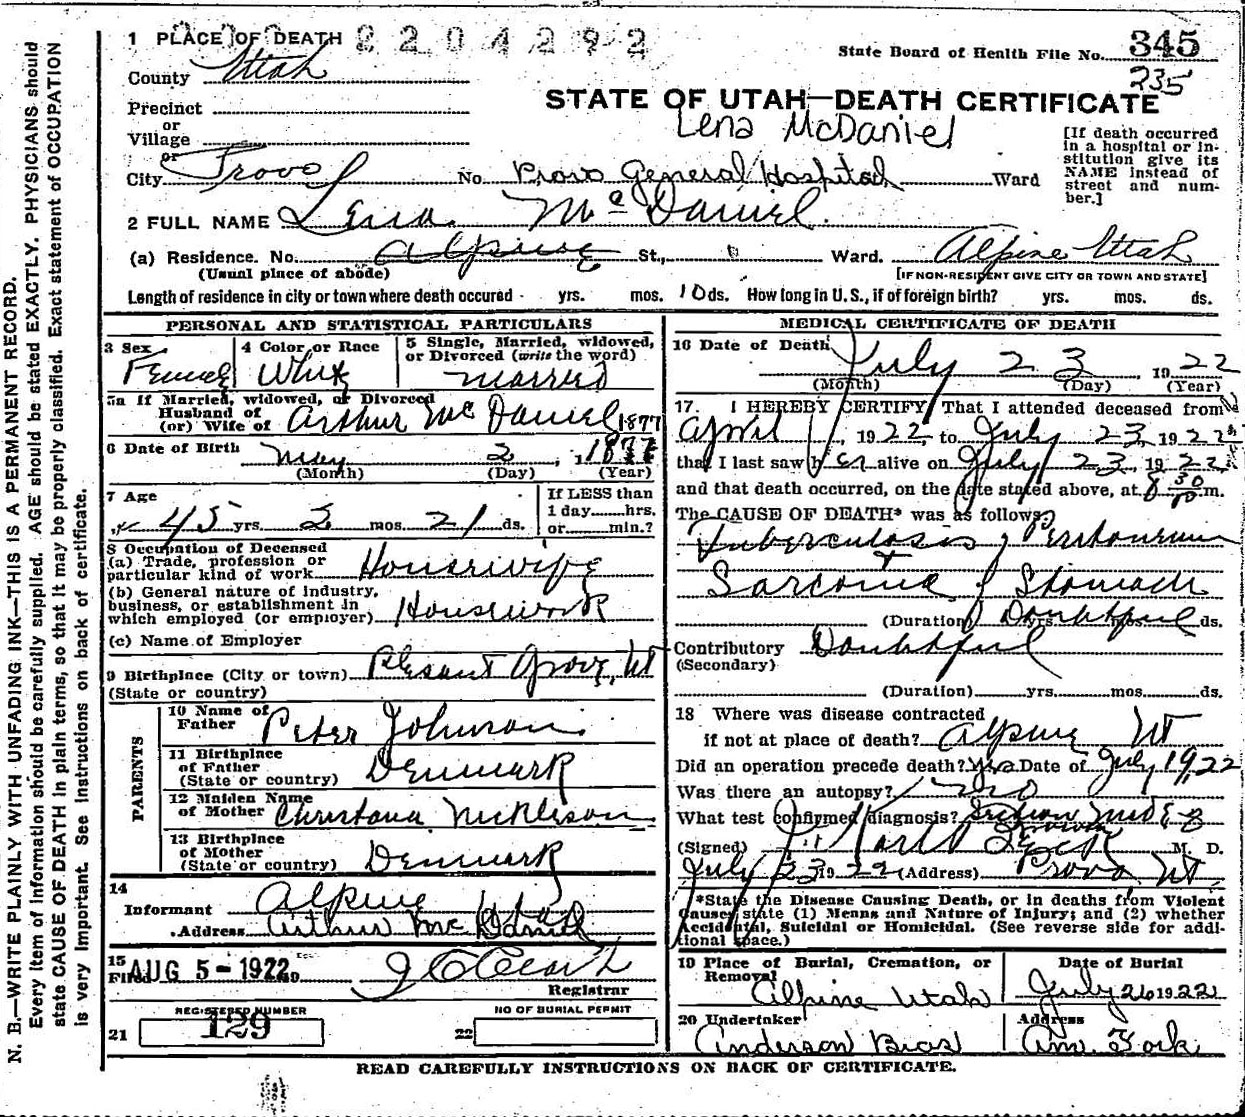 N. B.—WRITE PLAINLY WITH UNFADING INK—THIS IS A PERMANENT RECORD.
Every item of information should be carefully supplied. AGE should be stated EXACTLY. PHYSICIANS should
state CAUSE OF DEATH in plain terms, so that it may be properly classified. Exact statement of OCCUPATION
is very important. See instructions on back of certificate.
1 PLACE OF DEATH 2204292
State Board of Health File No. 345
235
County Utah
STATE OF UTAH—DEATH CERTIFICATE
Precinct
or
Village
or
Lena McDaniel
[If death occurred in a hospital or institution give its NAME instead of street and number.]
City Provo No. Provo General Hospital Ward
2 FULL NAME Lena McDaniel.
(a) Residence. No. Alpine St., Ward. Alpine Utah
(Usual place of abode) [IF NON-RESIDENT GIVE CITY OR TOWN AND STATE]
Length of residence in city or town where death occured yrs. mos. 10 ds. How long in U.S., if of foreign birth? yrs. mos. ds.
PERSONAL AND STATISTICAL PARTICULARS
3 Sex Female
4 Color or Race White
5 Single, Married, widowed, or Divorced (write the word) Married
5a If Married, widowed, or Divorced
Husband of
(or) Wife of Arthur McDaniel
1877
6 Date of Birth May 2, 1877
(Month) (Day) (Year)
7 Age
45 yrs. 2 mos. 21 ds.
If LESS than
1 day hrs.
or min.?
8 Occupation of Deceased
(a) Trade, profession or
particular kind of work Housewife
(b) General nature of industry,
business, or establishment in
which employed (or employer) Housework
(c) Name of Employer
9 Birthplace (City or town) Plesant Grove, Ut
(State or country)
PARENTS
10 Name of
Father Peter Johnson.
11 Birthplace
of Father
(State or country) Denmark
12 Maiden Name
of Mother Christana Nickleson
13 Birthplace
of Mother
(State or country) Denmark
14
Informant Alpine Utah
Address Arthur McDaniel
15
Filed AUG 5 - 1922 19
Registrar
21 REGISTERED NUMBER
129
22 NO OF BURIAL PERMIT
MEDICAL CERTIFICATE OF DEATH
16 Date of Death
July 23 1922
(Month) (Day) (Year)
17. I HEREBY CERTIFY, That I attended deceased from
April, 1922 to July 23 1922
that I last saw her alive on July 23, 1922
and that death occurred, on the date stated above, at 8 30 p.m.
The CAUSE OF DEATH* was as follows:
Tuberculosis of Peritoneum
+
Sarcoma of Stomach
(Duration) Doubtful yrs. mos. ds.
Contributory Doubtful
(Secondary)
(Duration) yrs. mos. ds.
18 Where was disease contracted
if not at place of death? Alpine Ut
Did an operation precede death? yes Date of July 19, 22
Was there an autopsy? no
What test confirmed diagnosis?
(Signed) M. D.
July 23 1922 (Address) Provo Ut.
*State the Disease Causing Death, or in deaths from Violent
Causes, state (1) Menns and Nature of Injury; and (2) whether
Accidental, Suicidal or Homicidal. (See reverse side for addi-
tional space.)
19 Place of Burial, Cremation, or
Removal
Alpine Utah
Date of Burial
July 26 1922
20 Undertaker
Anderson Bros
Address
Am. Fork
READ CAREFULLY INSTRUCTIONS ON BACK OF CERTIFICATE.